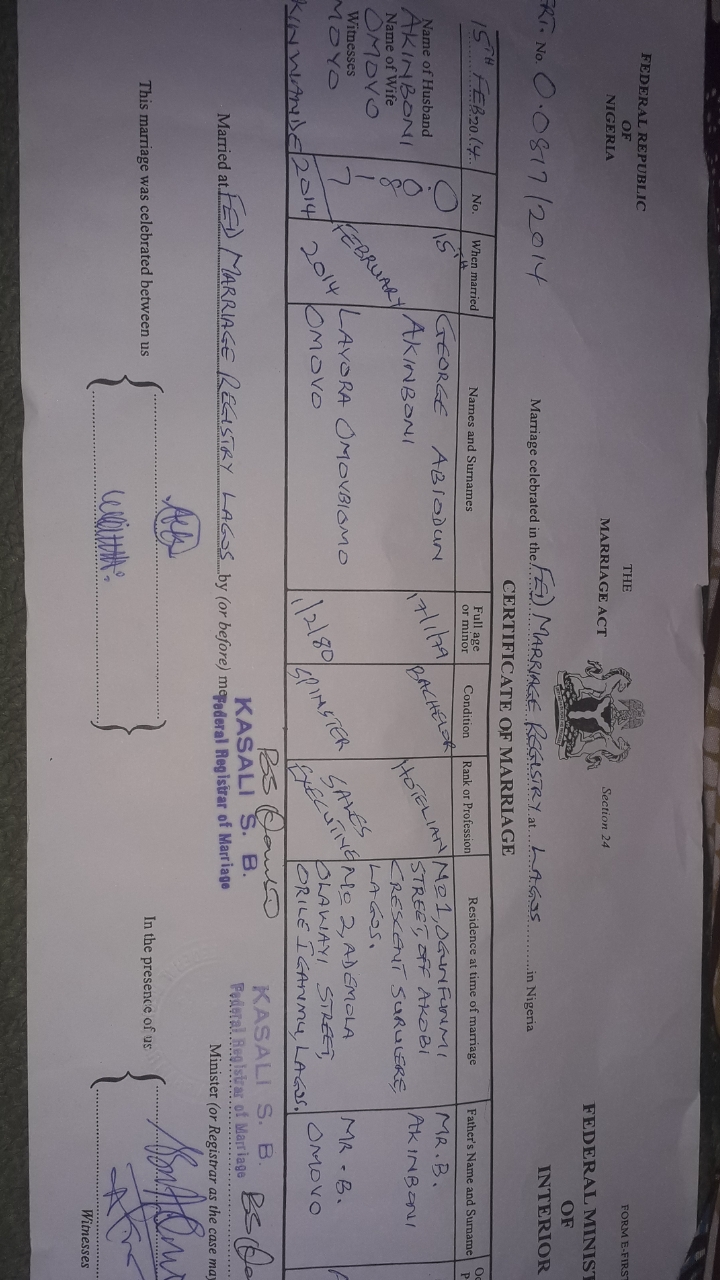 FEDERAL REPUBLIC
OF
NIGERIA
THE
MARRIAGE ACT
Section 24
FORM E-FIRS
FEDERAL MINIST
OF
INTERIOR
RT. No. 0.0817/2014
Marriage celebrated in the FED MARRIAGE REGISTRY at LAGOS in Nigeria
CERTIFICATE OF MARRIAGE
15TH FEB 2014
No.
When married
Names and Surnames
Full age or minor
Condition
Rank or Profession
Residence at time of marriage
Father's Name and Surname
Name of Husband
AKINBONI
Name of Wife
OMOVO
Witnesses
MOYO
KINWANDE
0.
0
8
1
7
2014
15TH
FEBRUARY
2014
GEORGE ABIODUN
AKINBONI
17/1/79
BACHELOR
HOTELIAN
No 1, OGUNFUNMI
STREET, OFF AKOBI
CRESCENT SURULERE,
LAGOS.
MR. B.
AKINBONI
LAYORA OMOVBIOMO
OMOVO
1/2/80
SPINSTER
SALES
EXECUTIVE
No 2, ADEMOLA
OLAWAYI STREET,
ORILE IGANMU, LAGOS.
MR. B.
OMOVO
Married at FED MARRIAGE REGISTRY LAGOS by (or before) me
KASALI S. B.
Federal Registrar of Marriage
KASALI S. B.
Federal Registrar of Marriage
Minister (or Registrar as the case may
This marriage was celebrated between us
In the presence of us
Witnesses